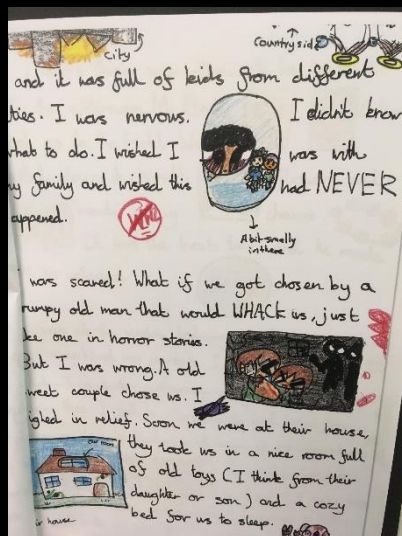 City
Countryside
and it was full of kids from different
ties. I was nervous. I didn't know
what to do. I wished I was with
y family and wished this had NEVER
appened.
A bit smelly
in there
was scared! What if we got chosen by a
rumpy old man that would WHACK us, just
ke one in horror stories.
But I was wrong. A old
weet couple chose us. I
ighed in relief. Soon we were at their house,
they took us in a nice room full
of old toys (I think from their
daughter or son) and a cozy
bed for us to sleep.
our room
ir house